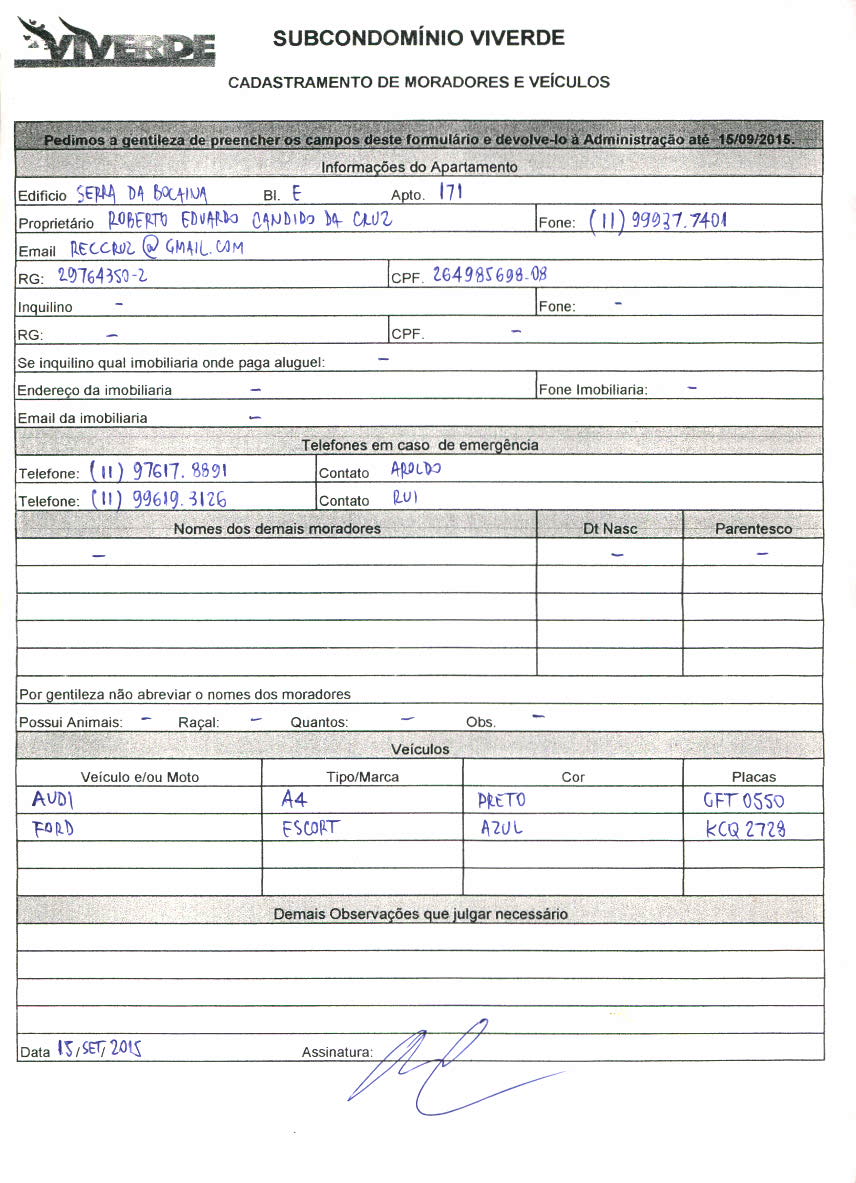 VIVERDE
SUBCONDOMÍNIO VIVERDE
CADASTRAMENTO DE MORADORES E VEÍCULOS
Pedimos a gentileza de preencher os campos deste formulário e devolve-lo à Administração até 15/09/2015.
Informações do Apartamento
Edificio SERRA DA BOCAINA Bl. E Apto. 171
Proprietário ROBERTO EDUARDO CANDIDO DA CRUZ Fone: (11) 99937.7401
Email RECCRUZ@GMAIL.COM
RG: 29764350-2 CPF. 264985698-08
Inquilino - Fone: -
RG: - CPF. -
Se inquilino qual imobiliaria onde paga aluguel: -
Endereço da imobiliaria - Fone Imobiliaria: -
Email da imobiliaria -
Telefones em caso de emergência
Telefone: (11) 97617.8891 Contato AROLDO
Telefone: (11) 99619.3126 Contato RUI
Nomes dos demais moradores Dt Nasc Parentesco
- - -
Por gentileza não abreviar o nomes dos moradores
Possui Animais: - Raçal: - Quantos: - Obs. -
Veículos
Veículo e/ou Moto Tipo/Marca Cor Placas
AUDI A4 PRETO GFT 0550
FORD ESCORT AZUL KCQ 2728
Demais Observações que julgar necessário
Data 15/SET/2015 Assinatura: